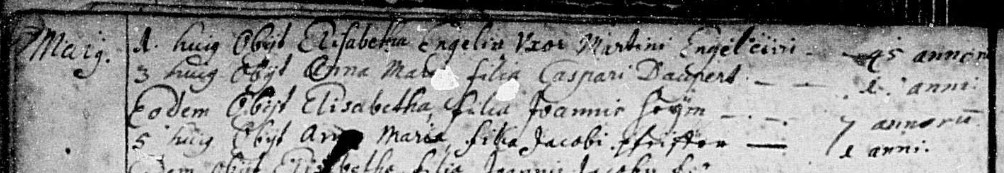 Maij. 1. huig Obijt Elisabetha Engelin Uxor Martini 45 annorū
3 huig Obijt Anna Mar filia Caspari Daupert 1. anni.
Eodem Obijt Elisabetha filia Joannis 7 annorū
5 huig Obijt Anna Maria filia Jacobi pfeiffer 1 anni.
Obijt Elisabetha filia Joannis Jacobi